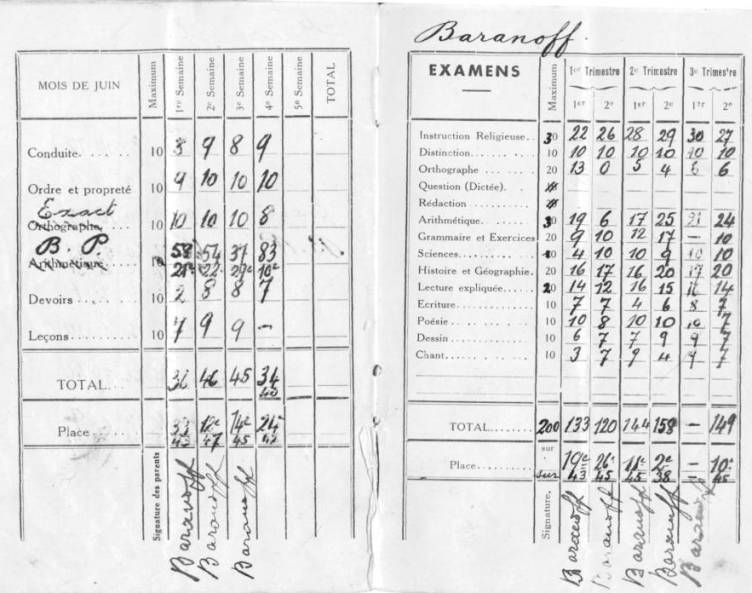 Baranoff.
MOIS DE JUIN Maximum 1re Semaine 2e Semaine 3e Semaine 4e Semaine 5e Semaine TOTAL
Conduite..... 10 8 9 8 9
Ordre et propreté 10 9 10 10 10
Exact
Orthographe 10 10 10 8
B. P. 58 54 37 83
Arithmétique 10 22
Devoirs 10 2 8 8 7
Leçons 10 7 9 9 -
TOTAL... 46 45 34
40
Place 14e 24e
47 45
Signature des parents Baranoff Baranoff Baranoff
EXAMENS Maximum 1er Trimestre 2e Trimestre 3e Trimestre
1er 2e 1er 2e 1er 2e
Instruction Religieuse.. 30 22 26 28 29 30 27
Distinction 10 10 10 10 10 10 10
Orthographe 20 13 0 5 4 6
Question (Dictée).
Rédaction
Arithmétique. 30 19 6 17 25 24
Grammaire et Exercices 20 9 10 12 17 - 10
Sciences 10 4 10 10 9 10 10
Histoire et Géographie. 20 16 17 16 20 17 20
Lecture expliquée..... 20 14 12 16 15 14
Ecriture 10 7 7 4 6 8 7
Poésie 10 10 8 10 10 10 7
Dessin 10 6 7 7 9 9 7
Chant 10 3 7 9 4 9 7
TOTAL 200 133 120 144 158 - 149
sur
Place 19e 26e 11e 2e - 10e
sur 43 45 45 38 45
Signature. Baranoff Baranoff Baranoff Baranoff Baranoff